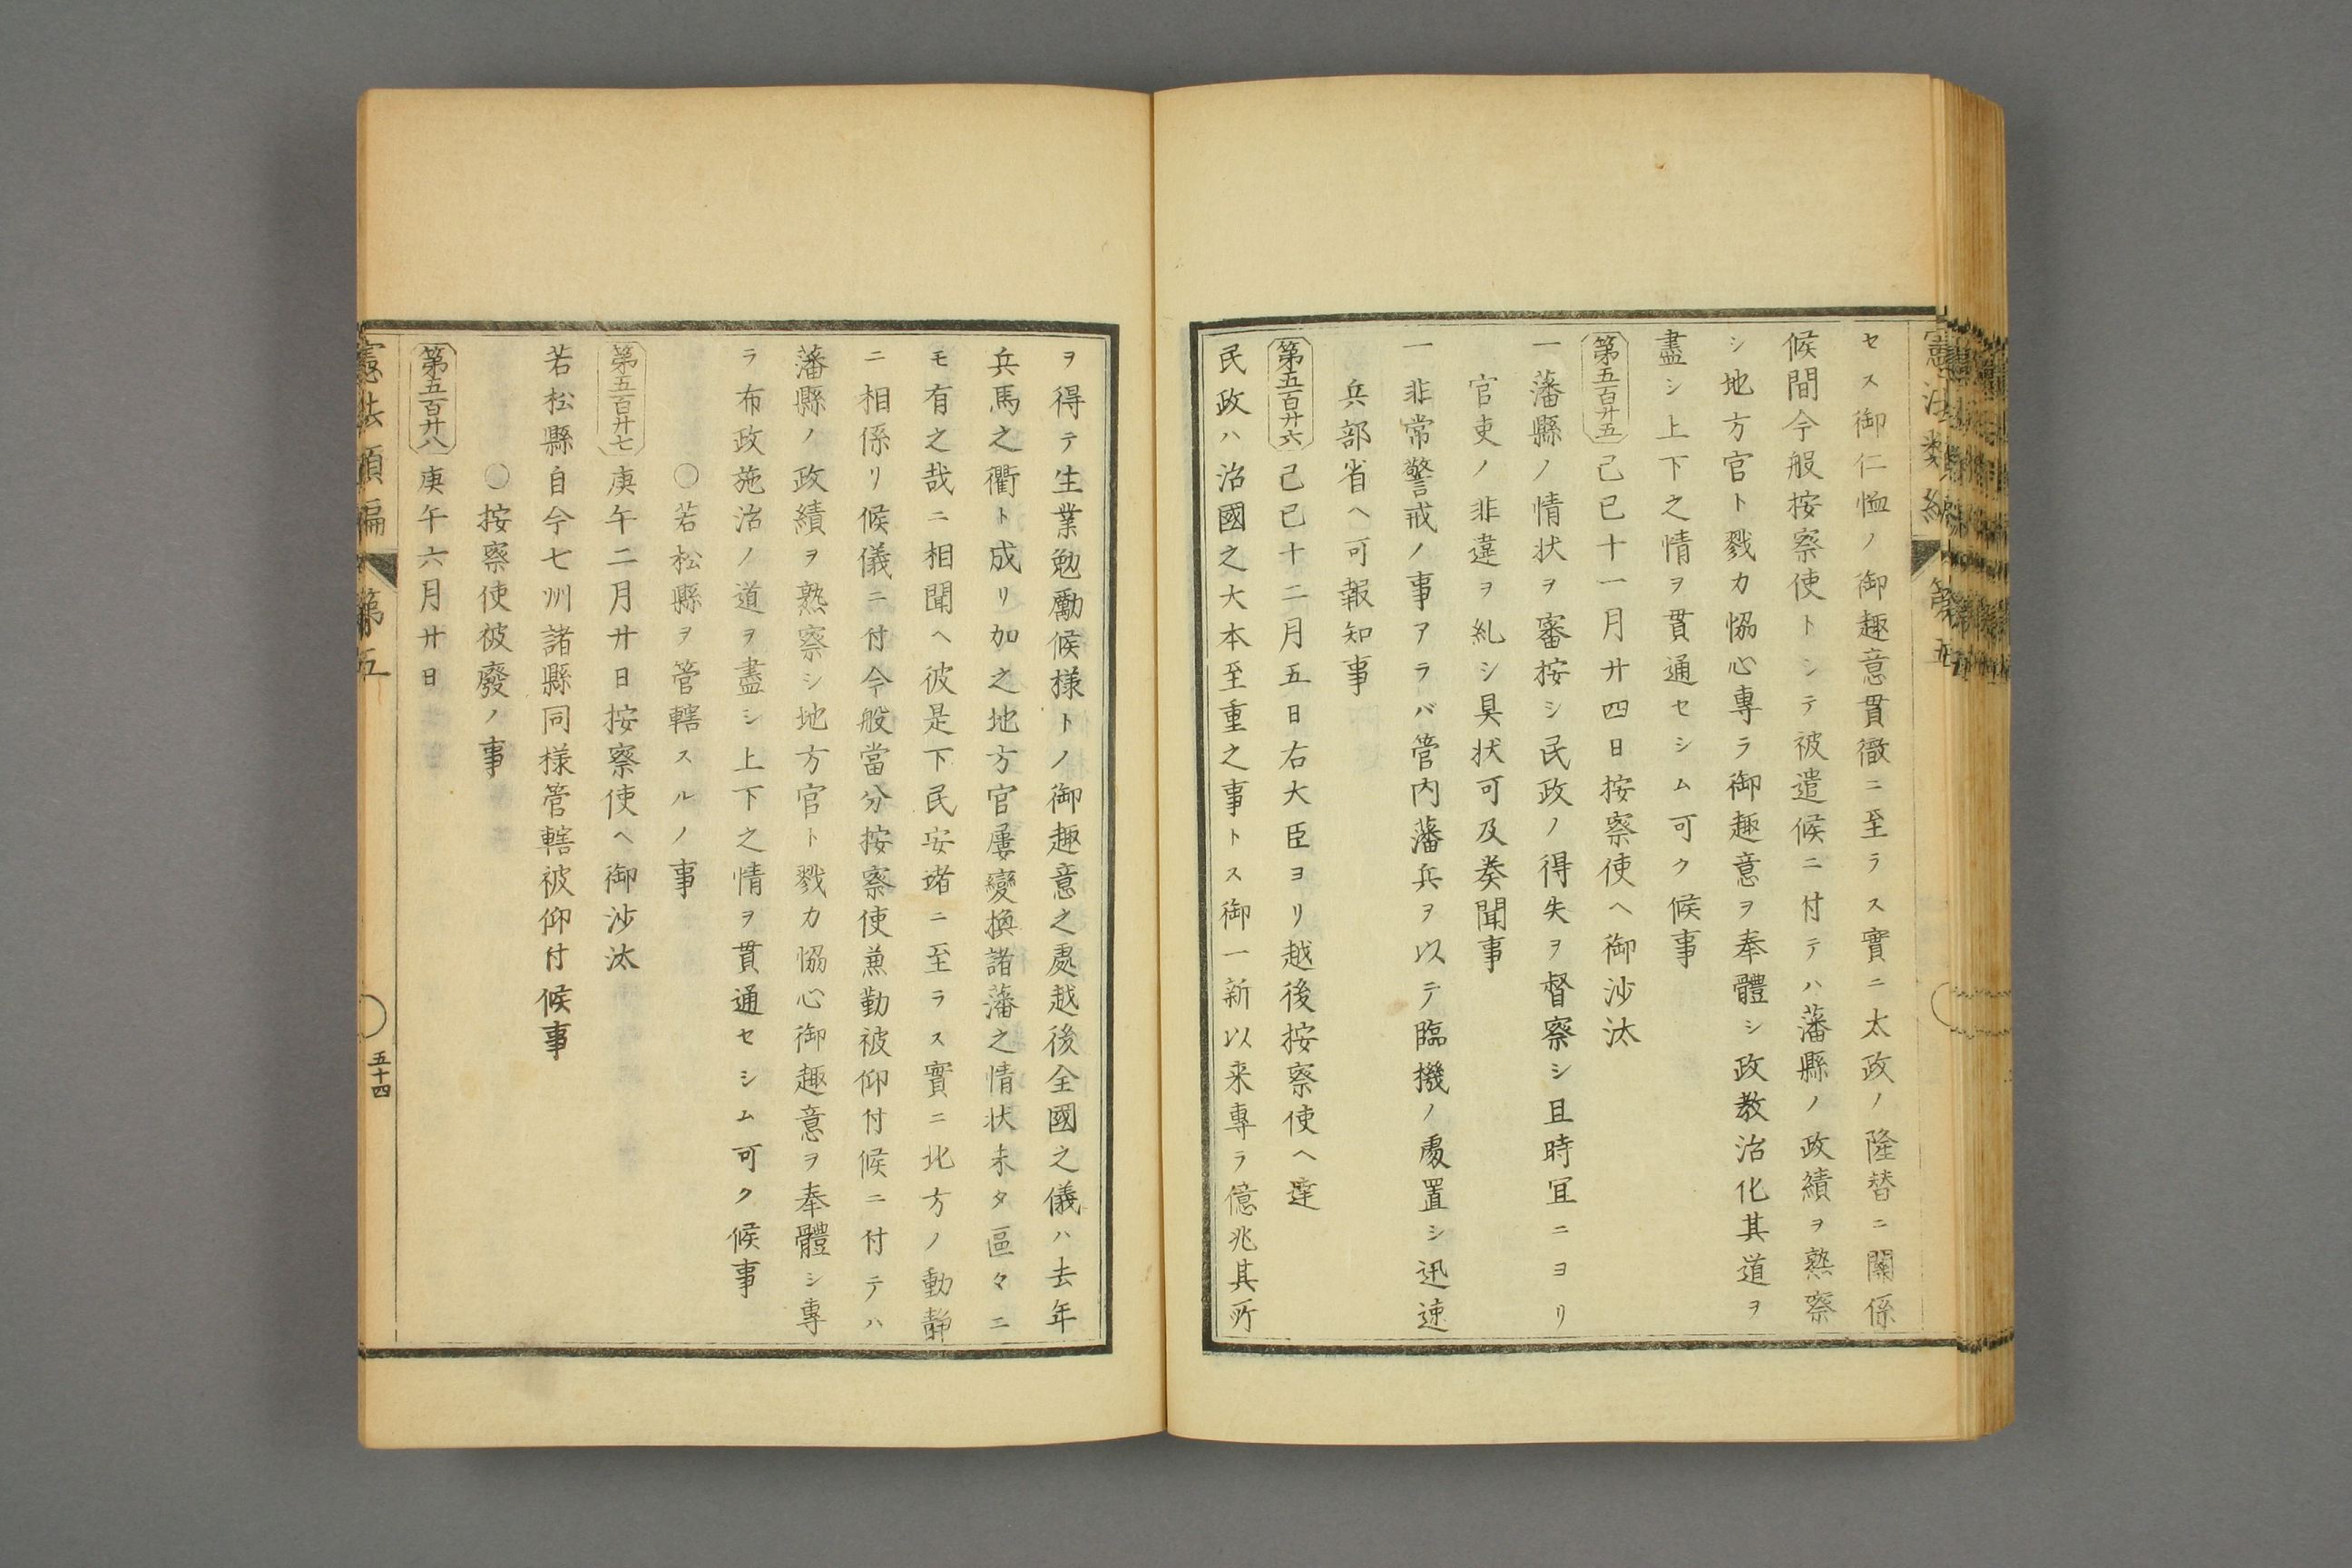 セス御仁恤ノ御趣意貫徹ニ至ラス實ニ太政ノ隆替ニ關係
候間今般按察使トシテ被遣候ニ付テハ藩縣ノ政績ヲ熟察
シ地方官ト戮力協心專ラ御趣意ヲ奉體シ政教治化其道ヲ
盡シ上下之情ヲ貫通セシム可ク候事
第五百廿五 己巳十一月廿四日按察使ヘ御沙汰
一藩縣ノ情状ヲ審按シ民政ノ得失ヲ督察シ且時宜ニヨリ
官吏ノ非違ヲ糺シ具状可及奏聞事
一非常警戒ノ事アラバ管内藩兵ヲ以テ臨機ノ處置シ迅速
兵部省ヘ可報知事
第五百廿六 己巳十二月五日右大臣ヨリ越後按察使ヘ達
民政ハ治國之大本至重之事トス御一新以来專ラ億兆其所
ヲ得テ生業勉勵候様トノ御趣意之處越後全國之儀ハ去年
兵馬之衢ト成リ加之地方官屢變換諸藩之情状未タ區々ニ
モ有之哉ニ相聞ヘ彼是下民安堵ニ至ラス實ニ北方ノ動靜
ニ相係リ候儀ニ付今般當分按察使兼勤被仰付候ニ付テハ
藩縣ノ政績ヲ熟察シ地方官ト戮力協心御趣意ヲ奉體シ專
ラ布政施治ノ道ヲ盡シ上下之情ヲ貫通セシム可ク候事
○若松縣ヲ管轄スルノ事
第五百廿七 庚午二月廿日按察使ヘ御沙汰
若松縣自今七州諸縣同様管轄被仰付候事
○按察使被廢ノ事
第五百廿八 庚午六月廿日
憲法類編 第五 五十四